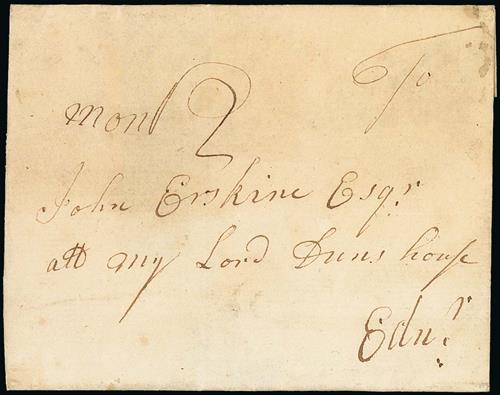 To
Mons 2
John Erskine Esqr.
att my Lord Duns house
Ednr.